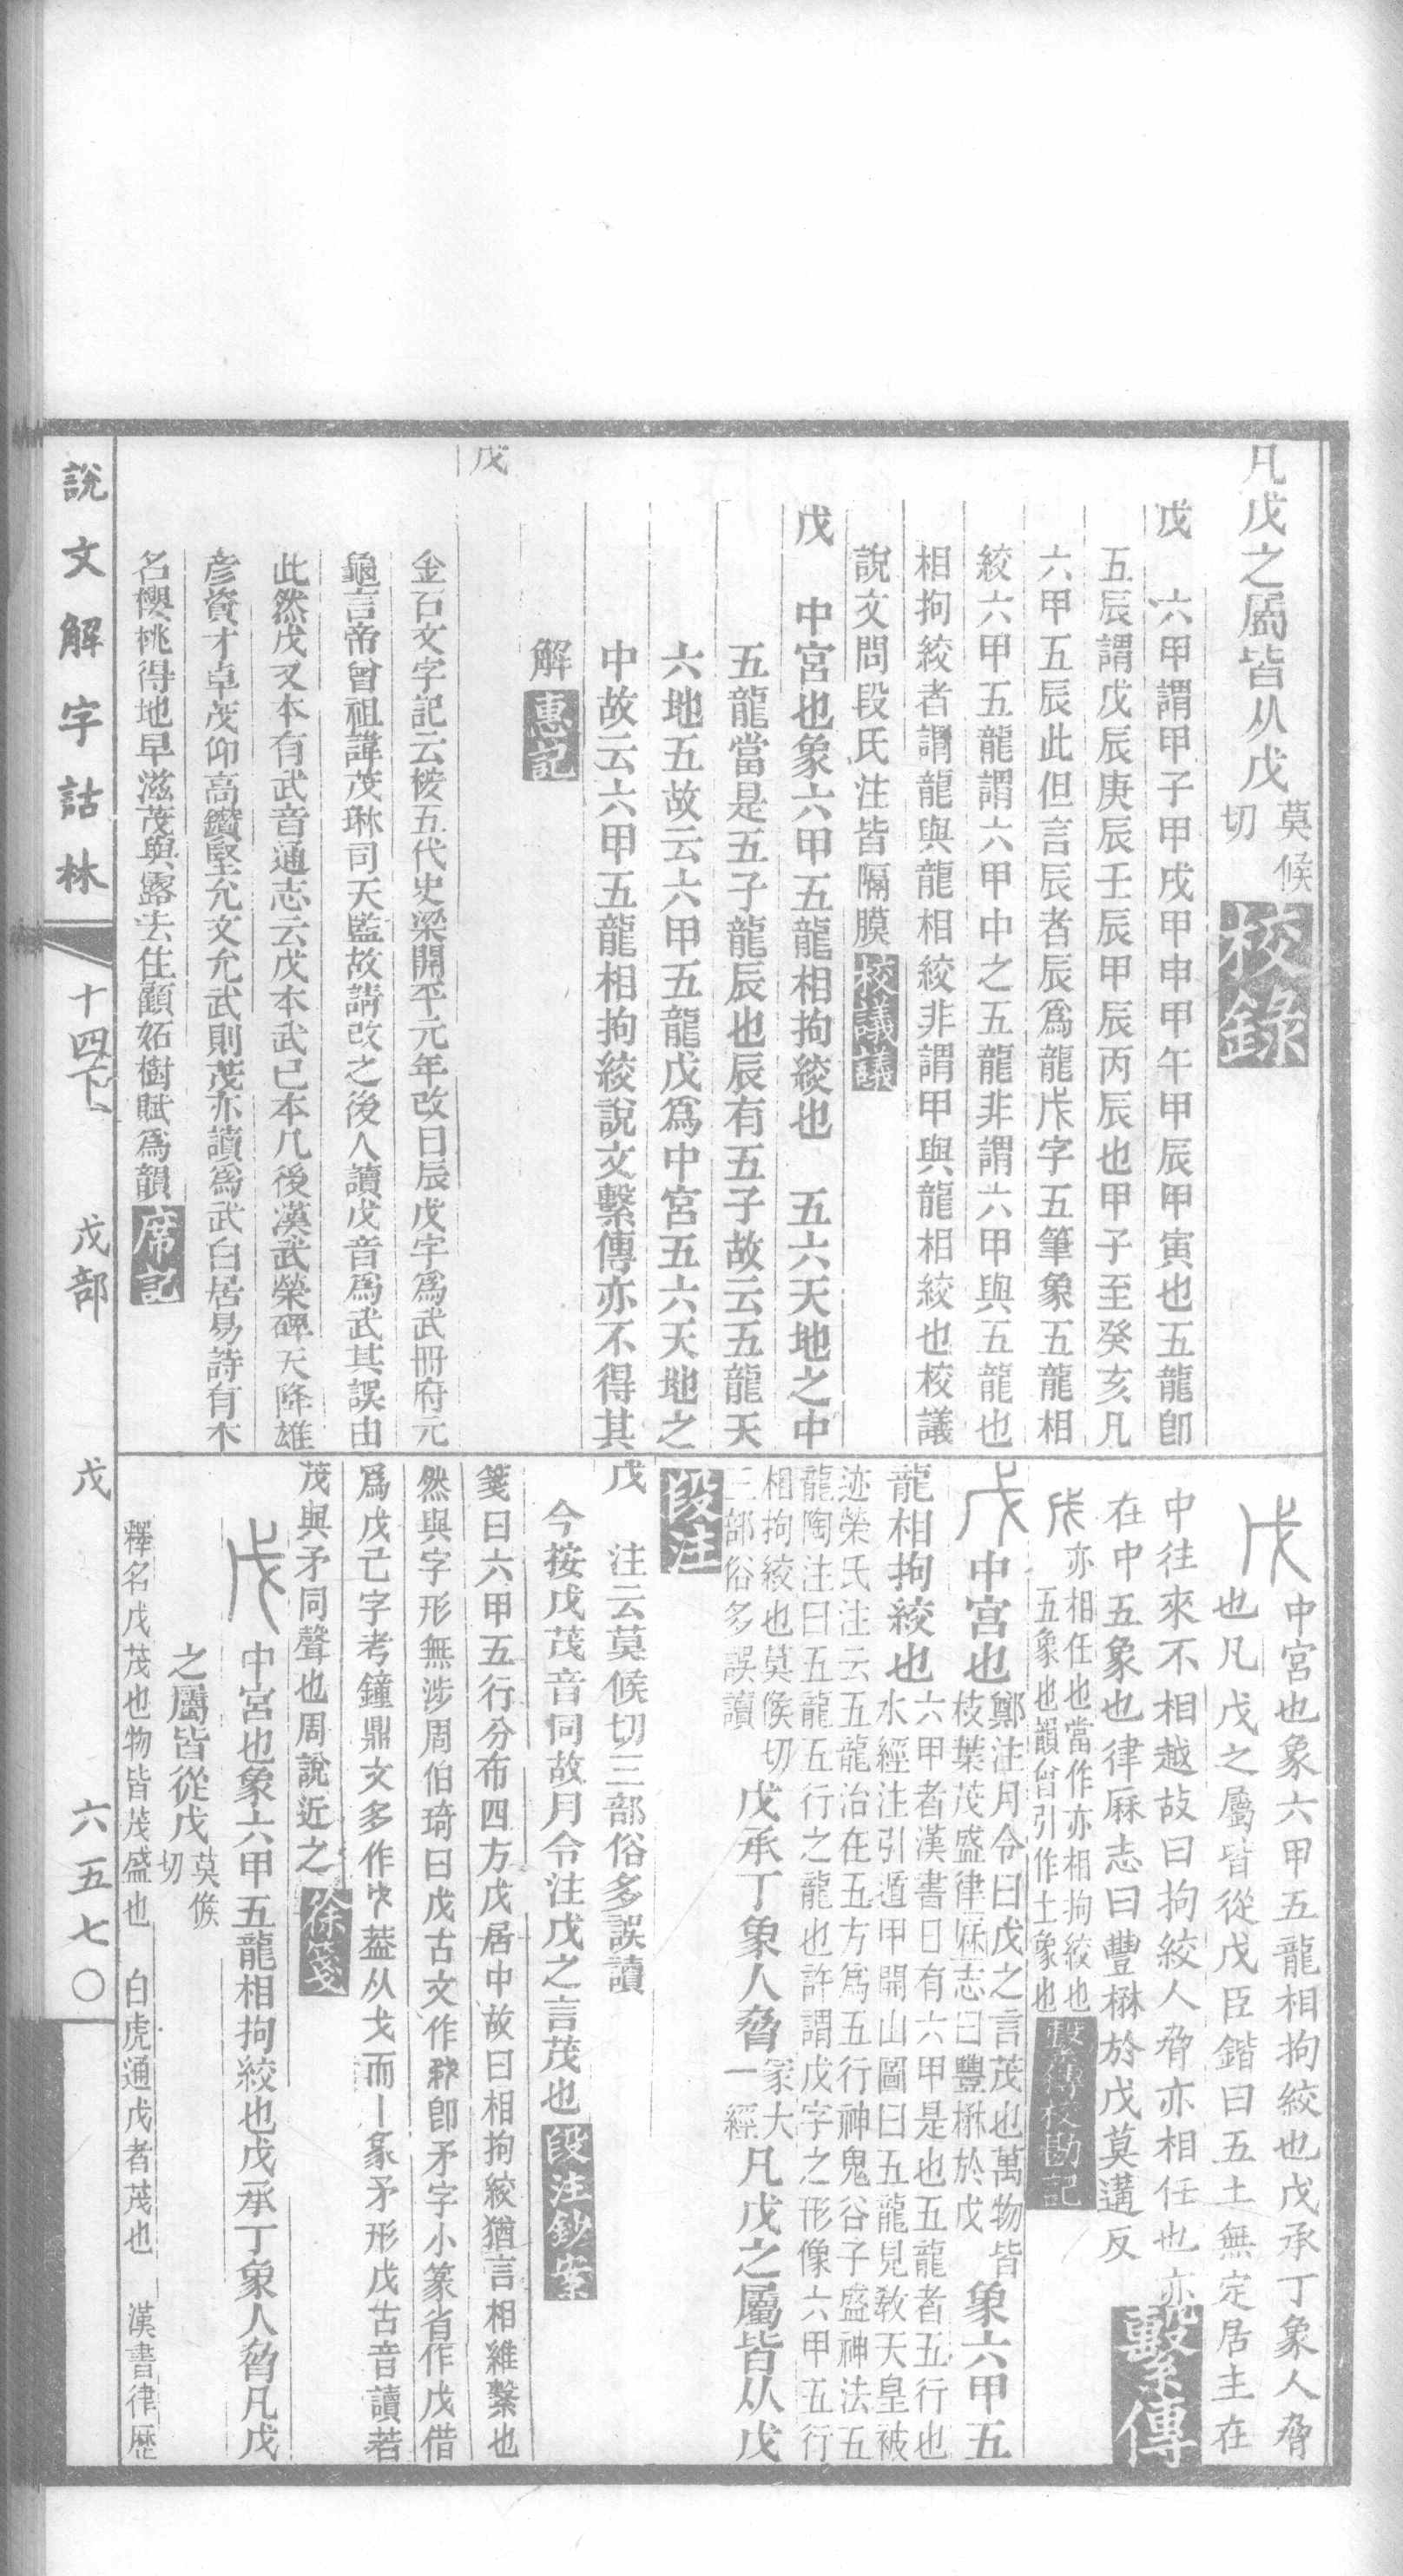 凡戊之屬皆从戊莫候切校錄
戊 六甲謂甲子甲戌甲申甲午甲辰甲寅也五龍卽
五辰謂戊辰庚辰壬辰甲辰丙辰也甲子至癸亥凡
六甲五辰此但言辰者辰爲龍戊字五筆象五龍相
絞六甲五龍謂六甲中之五龍非謂六甲與五龍也
相拘絞者謂龍與龍相絞非謂甲與龍相絞也校議
說文問段氏注皆隔膜校議議
戊 中宮也象六甲五龍相拘絞也 五六天地之中
五龍當是五子龍辰也辰有五子故云五龍天
六地五故云六甲五龍戊爲中宮五六天地之
中故云六甲五龍相拘絞說文繫傳亦不得其
解惠記
戊
金石文字記云按五代史梁開平元年改日辰戊字爲武冊府元
龜言帝曾祖諱茂琳司天監故請改之後人讀戊音爲武其誤由
此然戊又本有武音通志云戊本武己本几後漢武榮碑天降雄
彥資才卓茂仰高鑽堅允文允武則茂亦讀爲武白居易詩有木
名櫻桃得地早滋茂與露去住顧妬樹賦爲韻席記
中宮也象六甲五龍相拘絞也戊承丁象人脅
也凡戊之屬皆從戊臣鍇曰五土無定居主在
中往來不相越故曰拘絞人脅亦相任也亦
在中五象也律厤志曰豐楙於戊莫遘反繫傳
亦相任也當作亦相拘絞也
五象也韻會引作土象也繫傳校勘記
戊中宮也鄭注月令曰戊之言茂也萬物皆
枝葉茂盛律厤志曰豐楙於戊象六甲五
龍相拘絞也六甲者漢書日有六甲是也五龍者五行也
水經注引遁甲開山圖曰五龍見敎天皇被
迹榮氏注云五龍治在五方爲五行神鬼谷子盛神法五
龍陶注曰五龍五行之龍也許謂戊字之形像六甲五行
相拘絞也莫候切
三部俗多誤讀戊承丁象人脅冡大
一經凡戊之屬皆从戊
段注
戊 注云莫候切三部俗多誤讀
今按戊茂音同故月令注戊之言茂也段注鈔案
箋曰六甲五行分布四方戊居中故曰相拘絞猶言相維繫也
然與字形無涉周伯琦曰戊古文作卽矛字小篆省作戊借
爲戊己字考鐘鼎文多作葢从戈而丨象矛形戊古音讀若
茂與矛同聲也周說近之徐箋
戊中宮也象六甲五龍相拘絞也戊承丁象人脅凡戊
之屬皆從戊莫候切
釋名戊茂也物皆茂盛也 白虎通戊者茂也 漢書律歷
說文解字詁林 十四下 戊部 戊 六五七〇